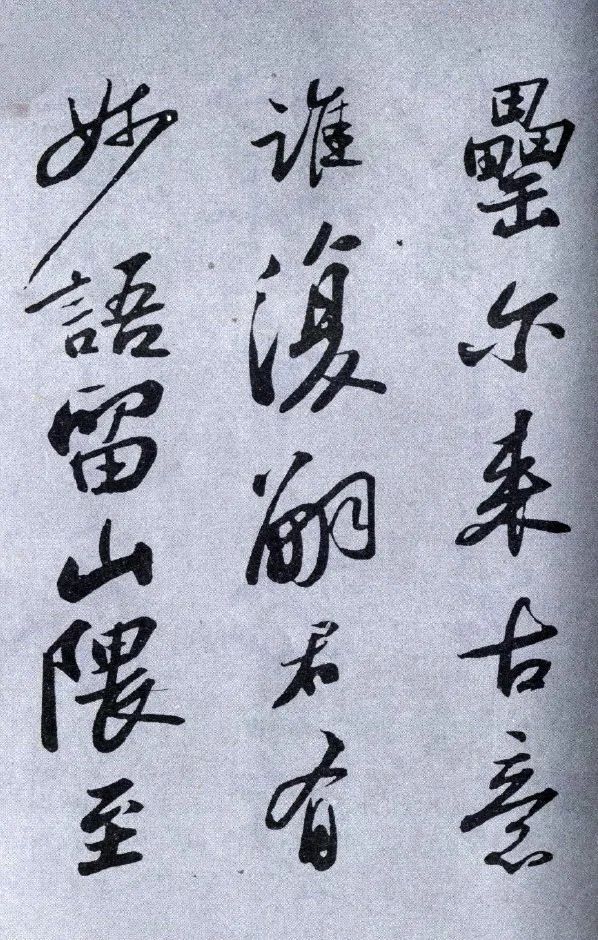 罍尔来古意
谁復嗣君有
妙語留山隈至